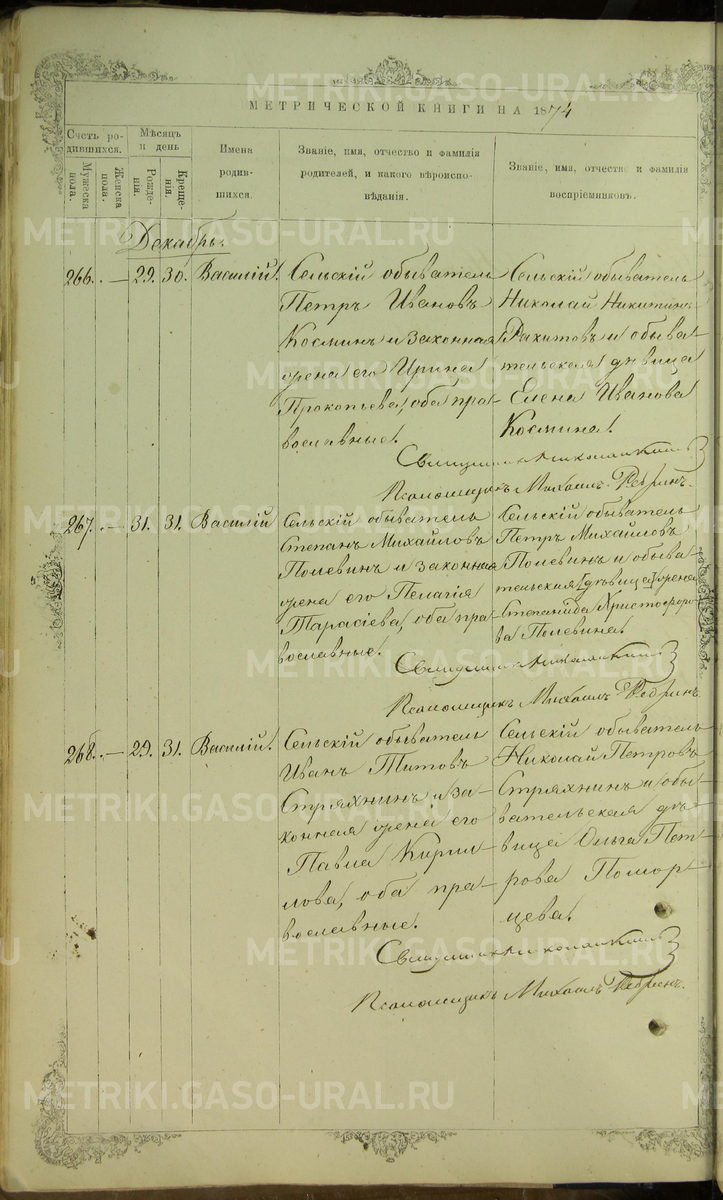 МЕТРИЧЕСКОЙ КНИГИ НА 1874
Счетъ ро-
дившихся.
Мужеска
пола.
Женска
пола.
Мѣсяцъ
и день
Рожде-
нія.
Креще-
нія.
Имена
родив-
шихся.
Званіе, имя, отчество и фамилія
родителей, и какого вѣроиспо-
вѣданія.
Званіе, имя, отчество и фамилія
воспріемниковъ.
Декабрь.
266. — 29. 30. Василій.
Сельскій обыватель
Петръ Ивановъ
Косминъ и законная
жена его Ирина
Прокопьева, оба пра-
вославные.
Сельскій обыватель
Николай Никитинъ
Рахитовъ и обыва
тельская дѣвица
Елена Иванова
Космина.
Священникъ
Псаломщикъ Михаилъ Ребринъ.
267. — 31. 31. Василій
Сельскій обыватель
Степанъ Михайловъ
Полевинъ и законная
жена его Пелагія
Тарасіева, оба пра-
вославные.
Сельскій обыватель
Петръ Михайловъ
Полевинъ и обыва-
тельская [дѣвица] жена
Степанида Христофоро-
ва Полевина.
Священникъ
Псаломщикъ Михаилъ Ребринъ
268. — 29. 31. Василій.
Сельскій обыватель
Иванъ Титовъ
Стряхнинъ и за-
конная жена его
Павла Кирил-
лова, оба пра-
вославные.
Сельскій обыватель
Николай Петровъ
Стряхнинъ и обы-
вательская дѣ-
вица Ольга Пет-
рова Помор-
цева.
Священникъ
Псаломщикъ Михаилъ Ребринъ.
METRIKI.GASO-URAL.RU